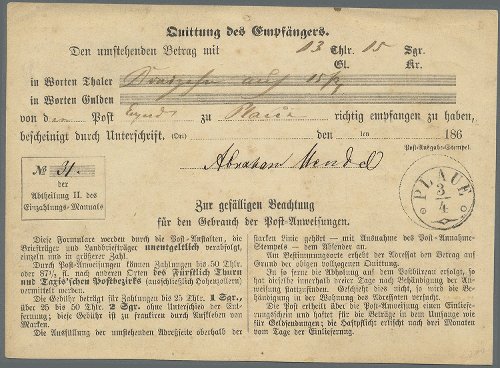 Quittung des Empfängers.
Den umstehenden Betrag mit 13 Thlr. 15 Sgr.
Gl. Kr.
in Worten Thaler 15
in Worten Gulden
von d Post zu Plaue richtig empfangen zu haben,
bescheinigt durch Unterschrift. (Ort) den ten 186
Post-Ausgabe-Stempel.
Abraham Mendel
№ 31.
der
Abtheilung II. des
Einzahlungs-Manuals
PLAUE
3/4
Zur gefälligen Beachtung
für den Gebrauch der Post-Anweisungen.
Diese Formulare werden durch die Post-Anstalten, die
Briefträger und Landbriefträger unentgeltlich verabfolgt,
einzeln und in größerer Zahl.
Durch Post-Anweisungen können Zahlungen bis 50 Thlr.
oder 87½ fl. nach anderen Orten des Fürstlich Thurn
und Taxis'schen Postbezirks (ausschließlich Hohenzollern)
vermittelt werden.
Die Gebühr beträgt für Zahlungen bis 25 Thlr. 1 Sgr.,
über 25 bis 50 Thlr. 2 Sgr. ohne Unterschied der Ent-
fernung; diese Gebühr ist zu frankiren durch Aufkleben von
Marken.
Die Ausfüllung der umstehenden Adreßseite oberhalb der
starken Linie gehört — mit Ausnahme des Post-Annahme-
Stempels — dem Absender an.
Am Bestimmungsorte erhält der Adressat den Betrag auf
Grund der obigen vollzogenen Quittung.
In so ferne die Abholung auf dem Postbüreau erfolgt, so
hat dieselbe innerhalb dreier Tage nach Behändigung der An-
weisung stattzufinden. Geschieht dies nicht, so wird die Be-
händigung in der Wohnung des Adressaten versucht.
Die Post ertheilt über die Post-Anweisung einen Einliefe-
rungsschein und haftet für die Beträge in dem Umfange wie
für Geldsendungen; die Haftpflicht erlischt nach drei Monaten
vom Tage der Einlieferung.